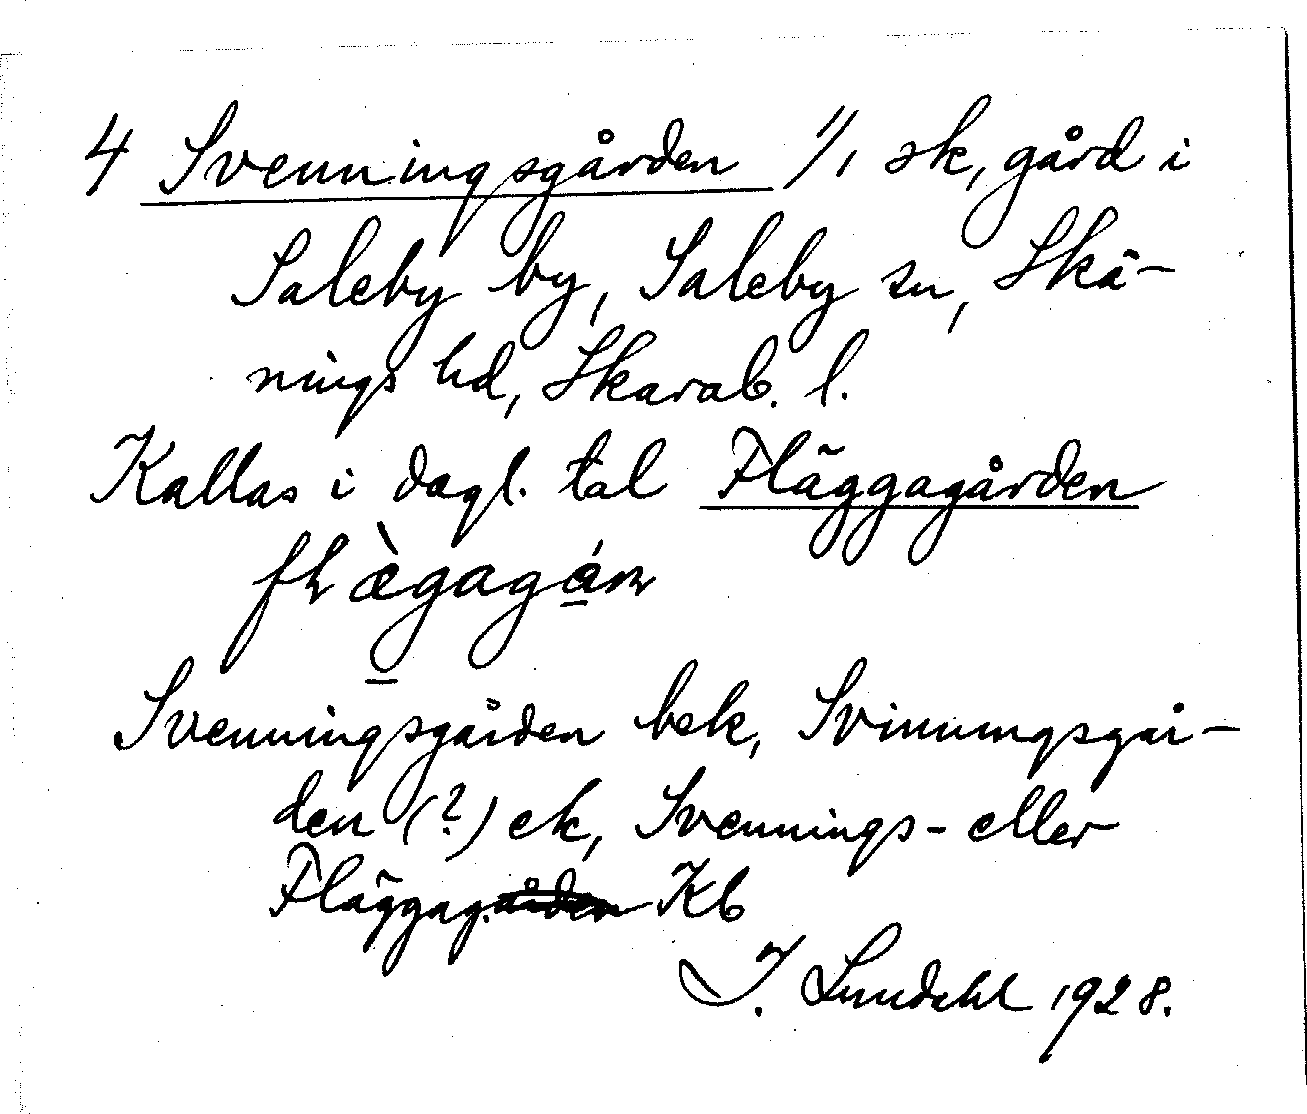 4 Svenningsgården 1/1 sk, gård i
Saleby by, Saleby sn, Skå-
nings hd, Skarab. l.
Kallas i dagl. tal Fläggagården
Svenningsgården bek, Svinningsgår-
den (?) ek, Svennings- eller
Fläggag. Kb
I. Lundahl 1928.